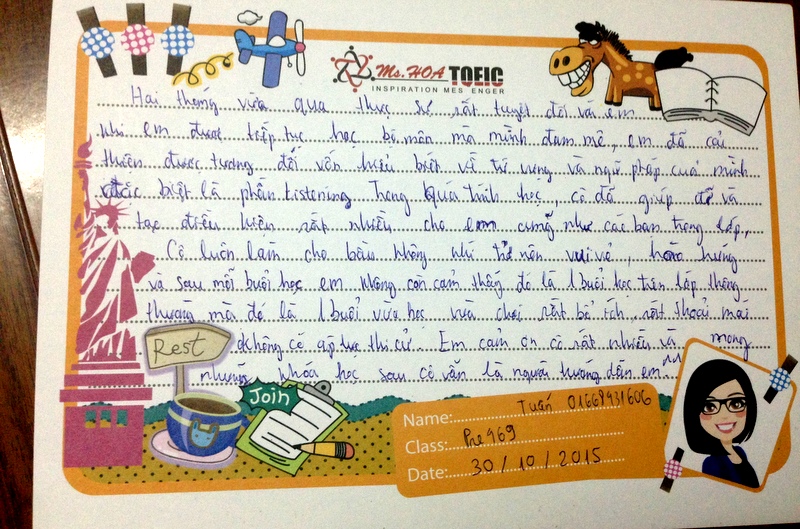 Ms.HOA TOEIC
INSPIRATION MESSENGER
Hai tháng vừa qua thực sự rất tuyệt đối với em
khi em được tiếp tục học bộ môn mà mình đam mê, em đã cải
thiện được tương đối vốn hiểu biết về từ vựng và ngữ pháp của mình
đặc biệt là phần Listening. Trong quá trình học, cô đã giúp đỡ và
tạo điều kiện rất nhiều cho em cũng như các bạn trong lớp,
Cô luôn làm cho bầu không khí trở nên vui vẻ, hào hứng
và sau mỗi buổi học em không còn cảm thấy đó là 1 buổi học trên lớp thông
thường mà đó là 1 buổi vừa học vừa chơi rất bổ ích, rất thoải mái
không có áp lực thi cử. Em cảm ơn cô rất nhiều và mong
những khóa học sau cô vẫn là người hướng dẫn em ^^
Rest
Join
Name: Tuấn 01668931606
Class: Pre 969
Date: 30/10/2015